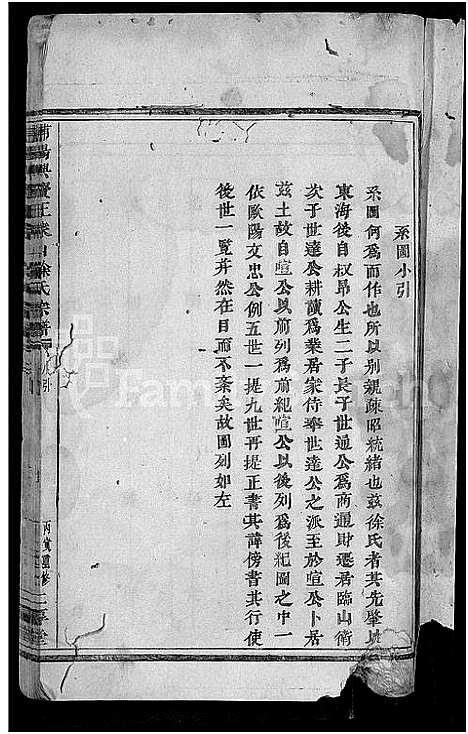 系圖小引
系圖何爲而作也所以別親疎昭統緒也茲徐氏者其先肇
東海後自叔昂公生二子長子世通公爲商通財遷居臨山衛
次子世達公耕讀爲業居家侍奉世達公之派至於暄公卜居
茲土故自暄公以前列爲前紀暄公以後列爲後紀圖之中一
依歐陽文忠公例五世一提九世再提正書其諱傍書其行使
後世一覽井然在目而不紊矣故圖列如左
王家 徐氏宗譜 小引
丙寅重修